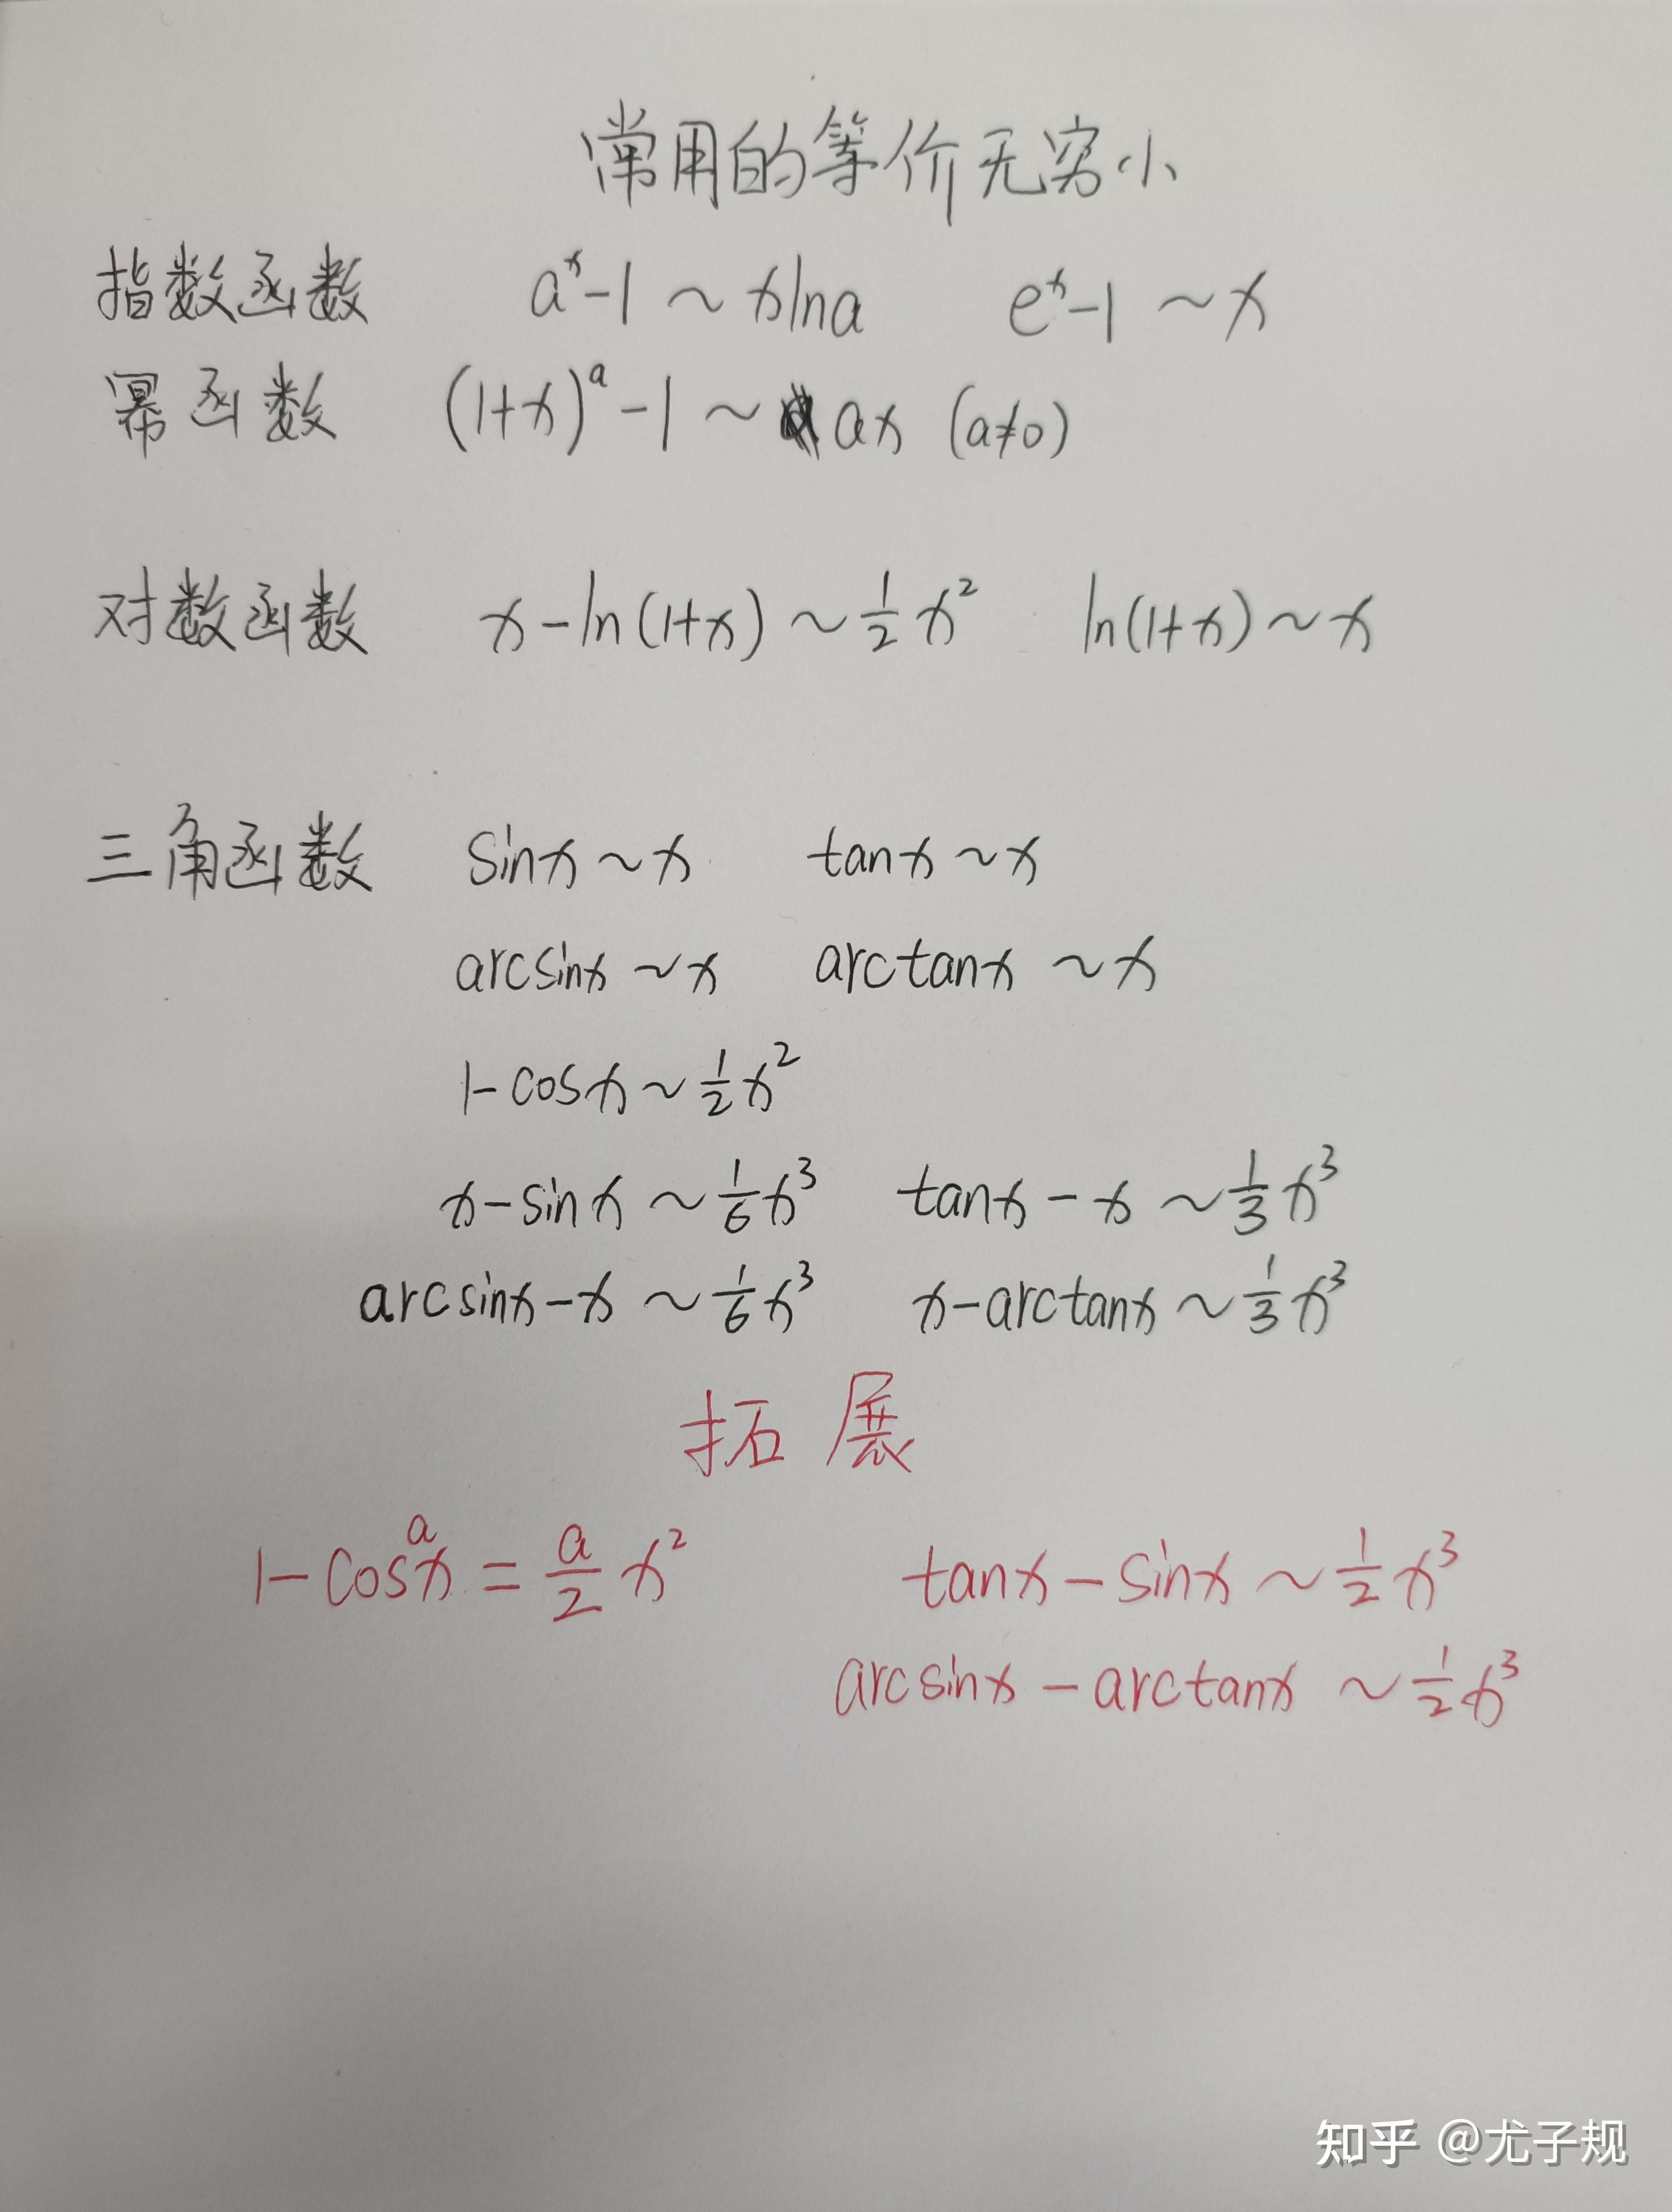 常用的等价无穷小
指数函数 aˣ-1 ~ xlna eˣ-1 ~ x
幂函数 (1+x)ᵃ-1 ~ ax (a≠0)
对数函数 x-ln(1+x) ~ 1/2 x² ln(1+x) ~ x
三角函数 sinx ~ x tanx ~ x
arcsinx ~ x arctanx ~ x
1-cosx ~ 1/2 x²
x-sinx ~ 1/6 x³ tanx-x ~ 1/3 x³
arcsinx-x ~ 1/6 x³ x-arctanx ~ 1/3 x³
拓展
1-cosᵃx = a/2 x² tanx-sinx ~ 1/2 x³
arcsinx-arctanx ~ 1/2 x³
知乎 @尤子规